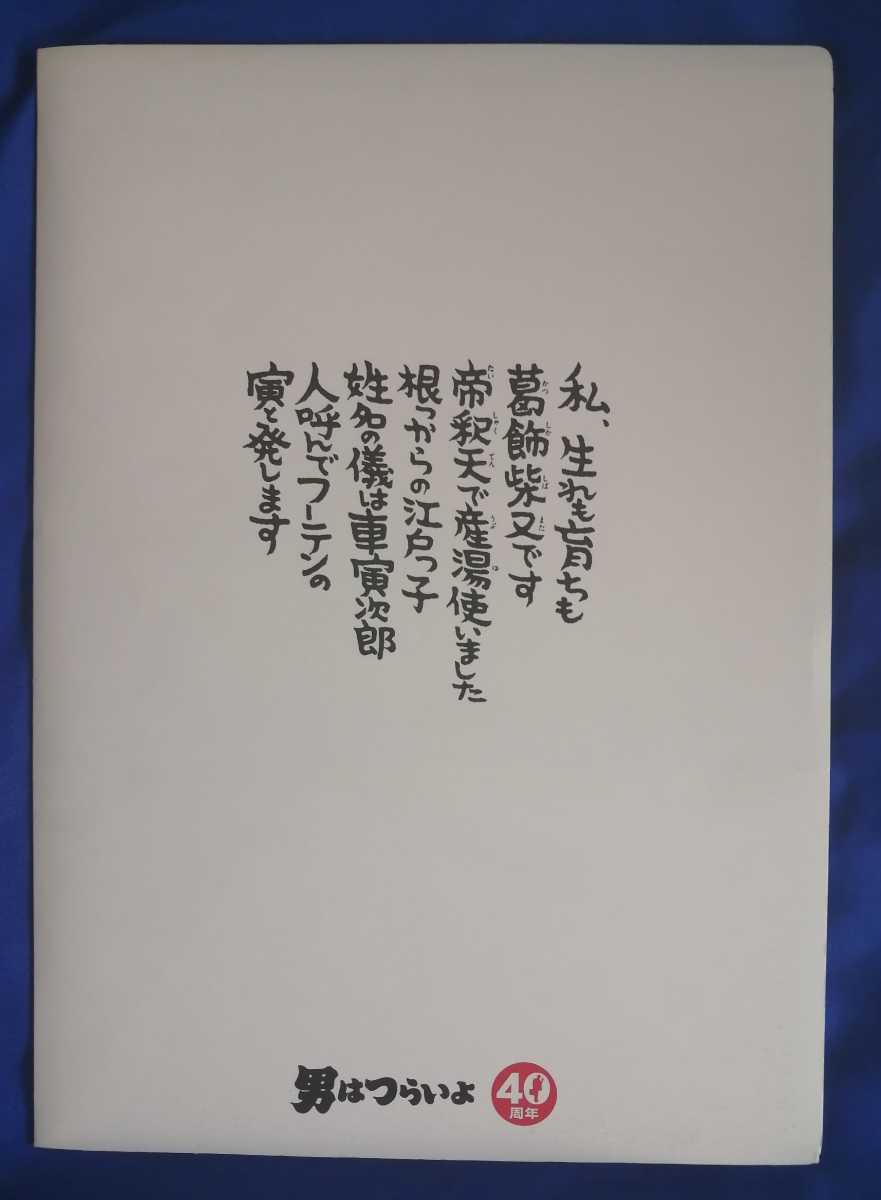 私、生れも育ちも
葛飾柴又です
帝釈天で産湯使いました
根っからの江戸っ子
姓名の儀は車寅次郎
人呼んでフーテンの
寅と発します
男はつらいよ
40
周年